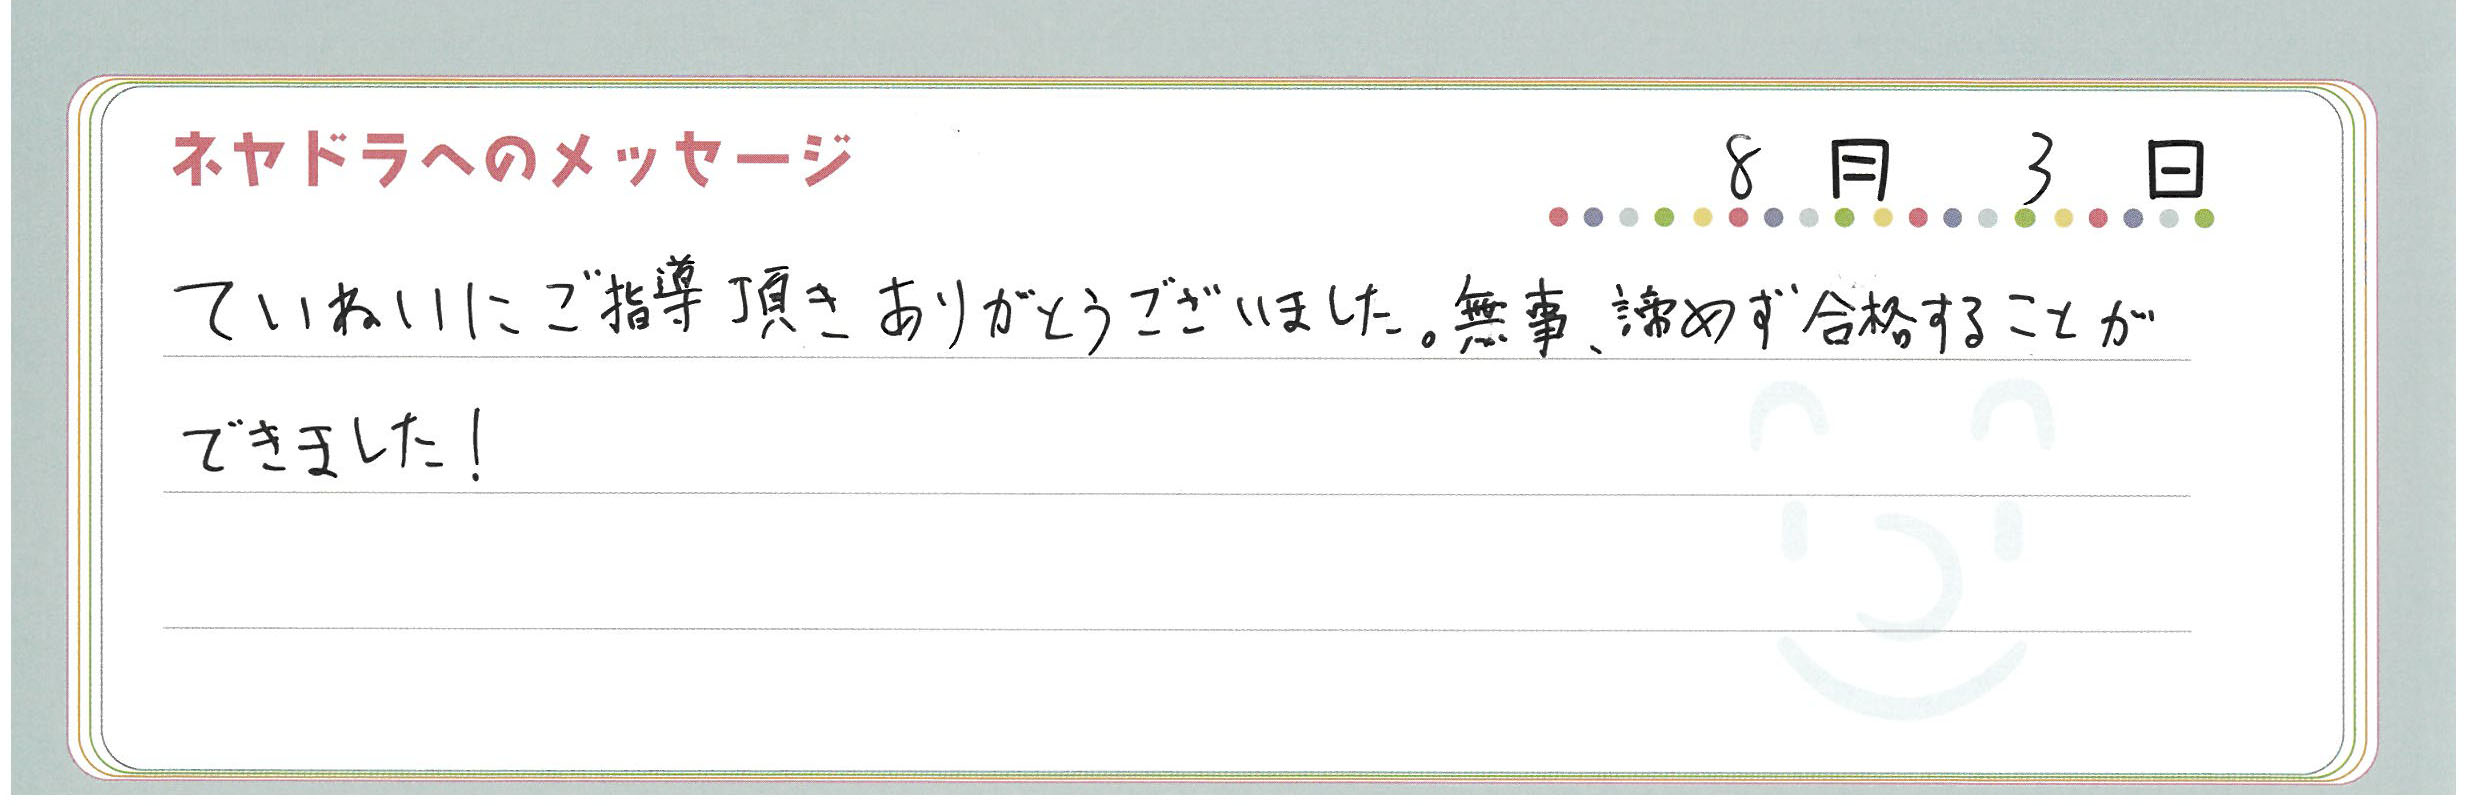 ネヤドラへのメッセージ
8月 3日
ていねいにご指導頂きありがとうございました。無事、諦めず合格することが
できました!